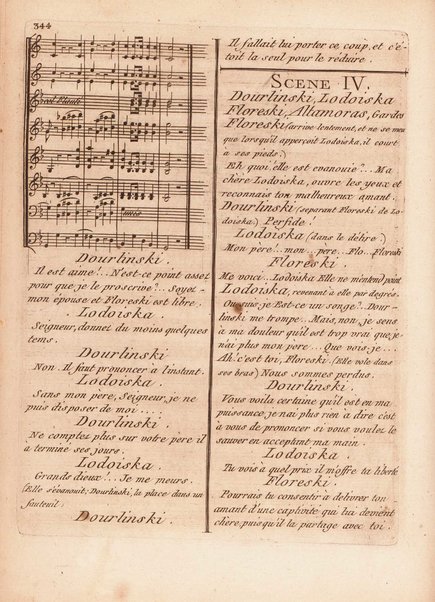 344
Dourlinski.
Il est aimé!.. N'est-ce point assez
pour que je le proscrive?.. Soyez
mon épouse et Floreski est libre.
Lodoiska.
Seigneur, donnez du moins quelques
tems.
Dourlinski
Non. Il faut prononcer à l'instant.
Lodoiska.
Sans mon pere, Seigneur, je ne
puis disposer de moi ....
Dourlinski
Ne comptez plus sur votre pere il
a terminé ses jours.
Lodoiska.
Grands dieux!.. Je me meurs.
(Elle s'évanouit; Dourlinski, la place dans un
fauteuil.
Dourlinski.
Il fallait lui porter ce coup, et c'é-
toit la seul pour le réduire.
SCENE IV.
Dourlinski, Lodoiska
Floreski, Altamoras, Gardes
Floreski (arrive lentement, et ne se meu
que lorsqu'il apperçoit Lodoiska, il court
a ses pieds.)
Eh quoi! elle est evanouie?... Ma
chère Lodoiska, ouvre les yeux et
reconnais ton malheureux amant.
Dourlinski (separant Floreski de Lo-
doiska) Perfide!
Lodoiska (dans le délire)
Mon père!.. mon.. pere.. Flo.. Floreski
Floreski.
Me voici.. Lodoiska Elle ne m'entend point
Lodoiska, revenant a elle par degrés.
Ou suis je Est-ce un songe?.. Dour-
linski me trompe.. Mais, non je sens
à ma douleur qu'il est trop vrai que je
n'ai plus mon pere... Que vois-je....
Ah. c'est toi, Floreski. (Elle vole dans
ses bras) Nous sommes perdus.
Dourlinski.
Vous voila certaine qu'il est en ma
puissance, je n'ai plus rien à dire c'est
à vous de prononcer si vous voulez le
sauver en acceptant ma main.
Lodoiska.
Tu vois à quel prix il m'offre ta liberté
Floreski.
Pourrais tu consentir à délivrer ton
amant d'une captivité qui lui devient
chère, puisqu'il la partage avec toi.